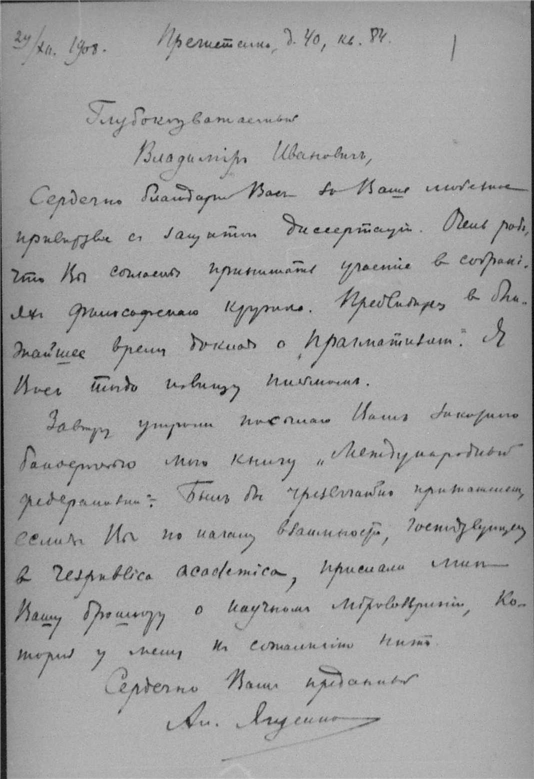 29/XII. 1908. Пречистенка, д. 40, кв. 84.
Глубокоуважаемый
Владимiръ Ивановичъ,
Сердечно благодарю Васъ за Ваше любезное
привѣтствiе съ защитой диссертацiи. Очень радъ,
что Вы согласны принимать участiе въ собранi-
яхъ философскаго кружка. Предвидится въ бли-
жайшее время докладъ о „прагматизмѣ“. Я
Васъ тогда извѣщу письмомъ.
Завтра утромъ посылаю Вамъ заказною
бандеролью мою книгу „Международный
федерализмъ“. Былъ бы чрезвычайно признателенъ,
еслибъ Вы по началу взаимности, господствующему
въ respublica academica, прислали мнѣ
Вашу брошюру о научномъ мiровоззрѣнiи, ко-
торой у меня къ сожалѣнiю нѣтъ.
Сердечно Вамъ преданный
Ал. Ященко